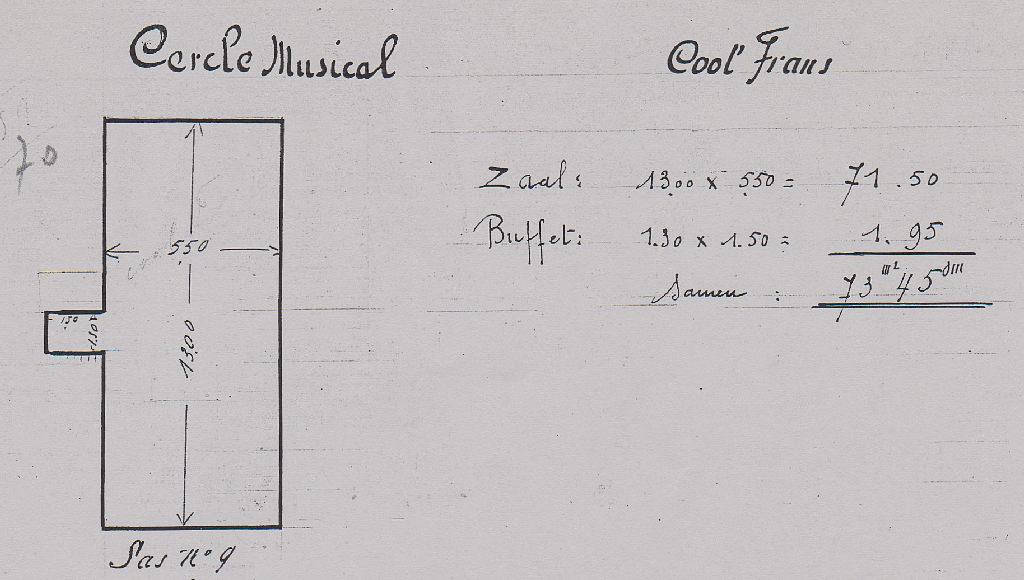 Cercle Musical
Cool Frans
70
Zaal: 13.00 x 5.50 = 71.50
Buffet: 1.30 x 1.50 = 1.95
Samen : 73 m² 45 dm
5.50
1.50
13.00
Sas n° 9